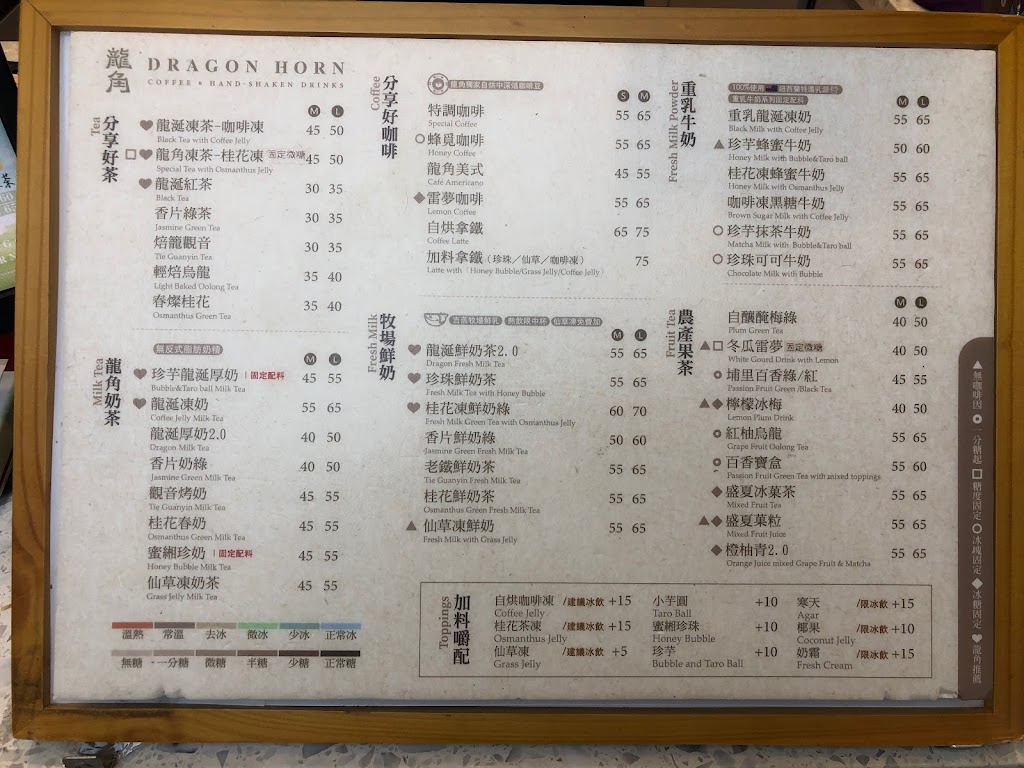 龍角
DRAGON HORN
COFFEE & HAND-SHAKEN DRINKS
Tea
分享好茶
M L
龍涎凍茶-咖啡凍 45 50
Black Tea with Coffee Jelly
龍角凍茶-桂花凍 固定微糖 45 50
Special Tea with Osmanthus Jelly
龍涎紅茶 30 35
Black Tea
香片綠茶 30 35
Jasmine Green Tea
焙籠觀音 30 35
Tie Guanyin Tea
輕焙烏龍 35 40
Light Baked Oolong Tea
春燦桂花 35 40
Osmanthus Green Tea
Milk Tea
龍角奶茶
無反式脂肪奶精
M L
珍芋龍涎厚奶 | 固定配料 45 55
Bubble&Taro ball Milk Tea
龍涎凍奶 55 65
Coffee Jelly Milk Tea
龍涎厚奶2.0 40 50
Dragon Milk Tea
香片奶綠 40 50
Jasmine Green Milk Tea
觀音烤奶 45 55
Tie Guanyin Milk Tea
桂花春奶 45 55
Osmanthus Green Milk Tea
蜜緗珍奶 | 固定配料 45 55
Honey Bubble Milk Tea
仙草凍奶茶 45 55
Grass Jelly Milk Tea
溫熱 常溫 去冰 微冰 少冰 正常冰
無糖 一分糖 微糖 半糖 少糖 正常糖
Coffee
分享好咖啡
龍角獨家自烘中深焙咖啡豆
S M
特調咖啡 55 65
Special Coffee
蜂覓咖啡 55 65
Honey Coffee
龍角美式 45 55
Café Americano
雷夢咖啡 55 65
Lemon Coffee
自烘拿鐵 65 75
Coffee Latte
加料拿鐵(珍珠/仙草/咖啡凍) 75
Latte with(Honey Bubble/Grass Jelly/Coffee Jelly)
Fresh Milk
牧場鮮奶
吉蒸牧場鮮乳 熱飲限中杯 仙草凍免費加
M L
龍涎鮮奶茶2.0 55 65
Dragon Fresh Milk Tea
珍珠鮮奶茶 55 65
Fresh Milk Tea with Honey Bubble
桂花凍鮮奶綠 60 70
Fresh Milk Green Tea with Osmanthus Jelly
香片鮮奶綠 50 60
Jasmine Green Fresh Milk Tea
老鐵鮮奶茶 55 65
Tie Guanyin Fresh Milk Tea
桂花鮮奶茶 55 65
Osmanthus Green Fresh Milk Tea
仙草凍鮮奶 55 65
Fresh Milk with Grass Jelly
Fresh Milk Powder
重乳牛奶
100%使用 紐西蘭特濃乳
重乳牛奶系列固定配料
M L
重乳龍涎凍奶 55 65
Black Milk with Coffee Jelly
珍芋蜂蜜牛奶 50 60
Honey Milk with Bubble&Taro ball
桂花凍蜂蜜牛奶 55 65
Honey Milk with Osmanthus Jelly
咖啡凍黑糖牛奶 55 65
Brown Sugar Milk with Coffee Jelly
珍芋抹茶牛奶 55 65
Matcha Milk with Bubble&Taro ball
珍珠可可牛奶 55 65
Chocolate Milk with Bubble
Fruit Tea
農產果茶
M L
自釀醃梅綠 40 50
Plum Green Tea
冬瓜雷夢 固定微糖 40 50
White Gourd Drink with Lemon
埔里百香綠/紅 45 55
Passion Fruit Green /Black Tea
檸檬冰梅 40 50
Lemon Plum Drink
紅柚烏龍 55 65
Grape Fruit Oolong Tea
百香寶盒 55 60
Passion Fruit Green Tea with mixed toppings
盛夏冰菓茶 55 65
Mixed Fruit Tea
盛夏菓粒 55 65
Mixed Fruit Juice
橙柚青2.0 55 65
Orange Juice mixed Grape Fruit & Matcha
Toppings
加料嚼配
自烘咖啡凍 /建議冰飲 +15 小芋圓 +10 寒天 /限冰飲 +15
Coffee Jelly Taro Ball Agar
桂花茶凍 /建議冰飲 +15 蜜緗珍珠 +10 椰果 /限冰飲 +10
Osmanthus Jelly Honey Bubble Coconut Jelly
仙草凍 /建議冰飲 +5 珍芋 +10 奶霜 /限冰飲 +15
Grass Jelly Bubble and Taro Ball Fresh Cream
▲無咖啡因 一分糖起 □糖度固定 ○冰塊固定 ◆冰糖固定 ♥龍角推薦